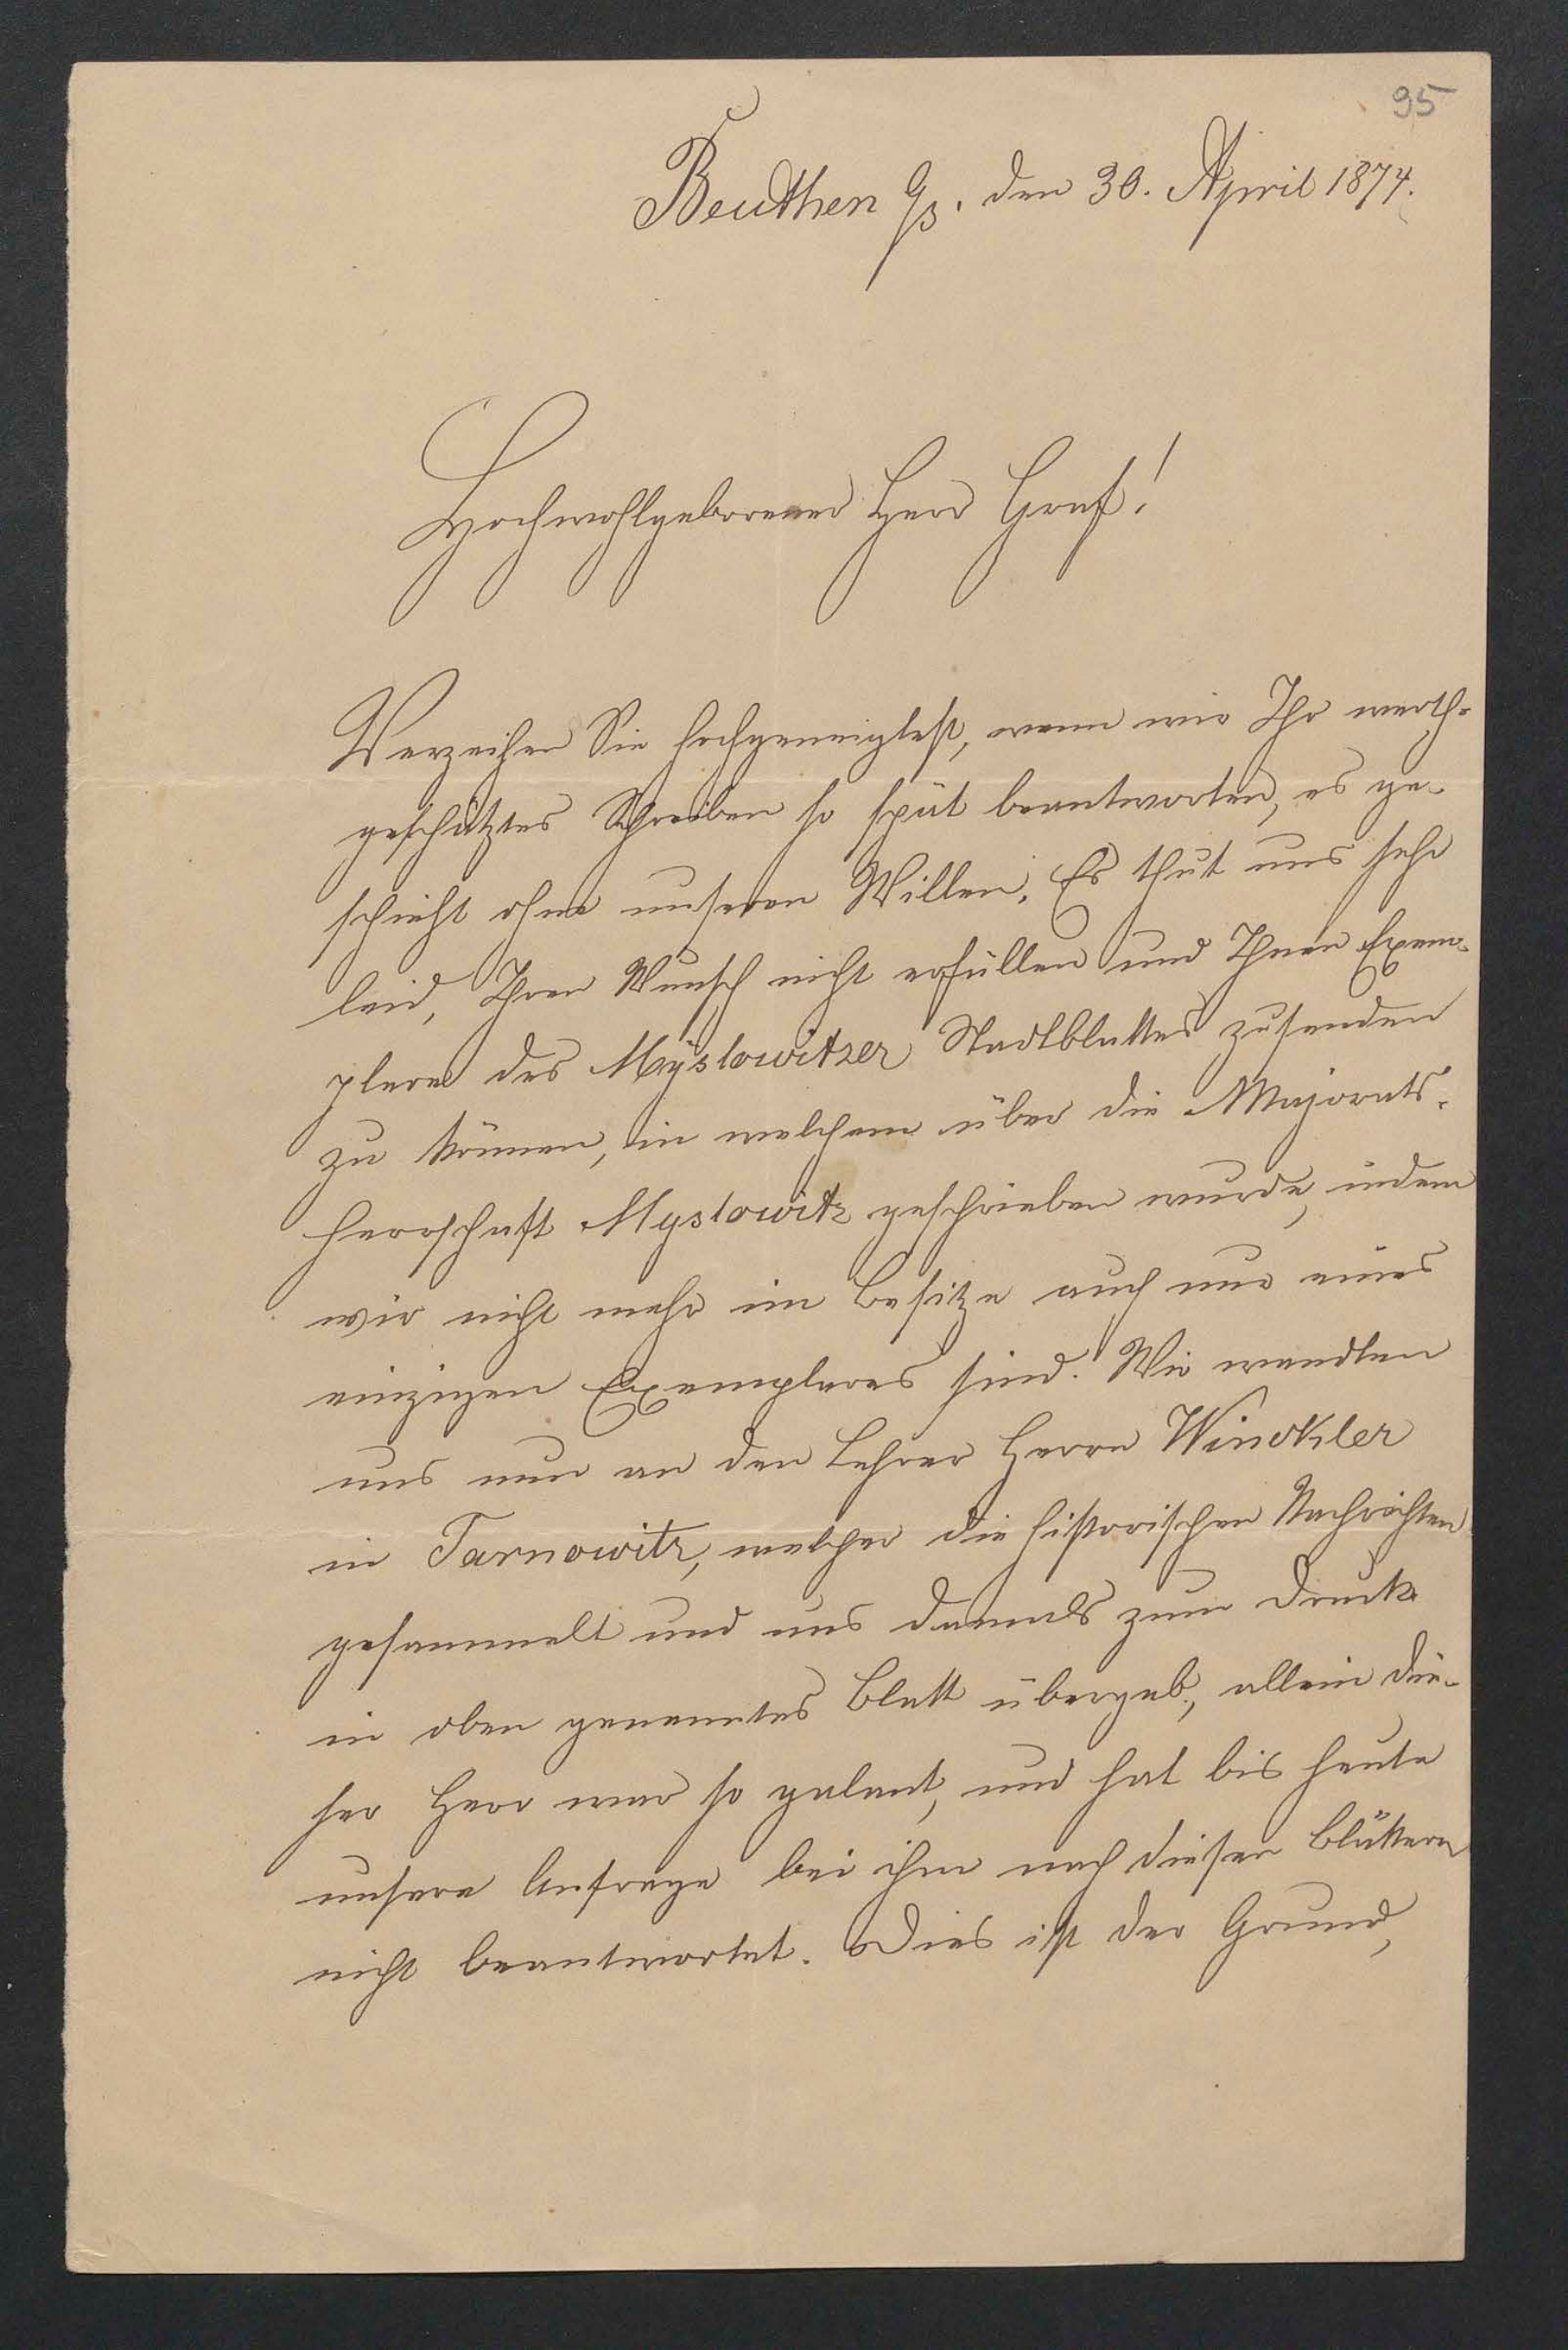 95
Beuthen O/S. den 30. April 1874.
Hochwohlgeborener Herr Graf!
Verzeihen Sie hochgeneigtest, wenn wir Ihr werth-
geschätztes Schreiben so spät beantworten, es ge-
schieht ohne unseren Willen. Es thut uns sehr
leid, Ihren Wunsch nicht erfüllen und Ihnen Exem-
plare des Myslowitzer Stadtblattes zusenden
zu können, in welchem über die Majorats-
herrschaft Myslowitz geschrieben wurde, indem
wir nicht mehr im Besitze auch nur eines
einzigen Exemplares sind. Wir wandten
uns nun an den Lehrer Herrn Winckler
in Tarnowitz, welcher die historischen Nachrichten
gesammelt und uns damals zum Druck
in oben genanntes Blatt übergab, allein die-
ser Herr war so galant, und hat bis heute
unsere Anfrage bei ihm nach diesen Blättern
nicht beantwortet. Dies ist der Grund,